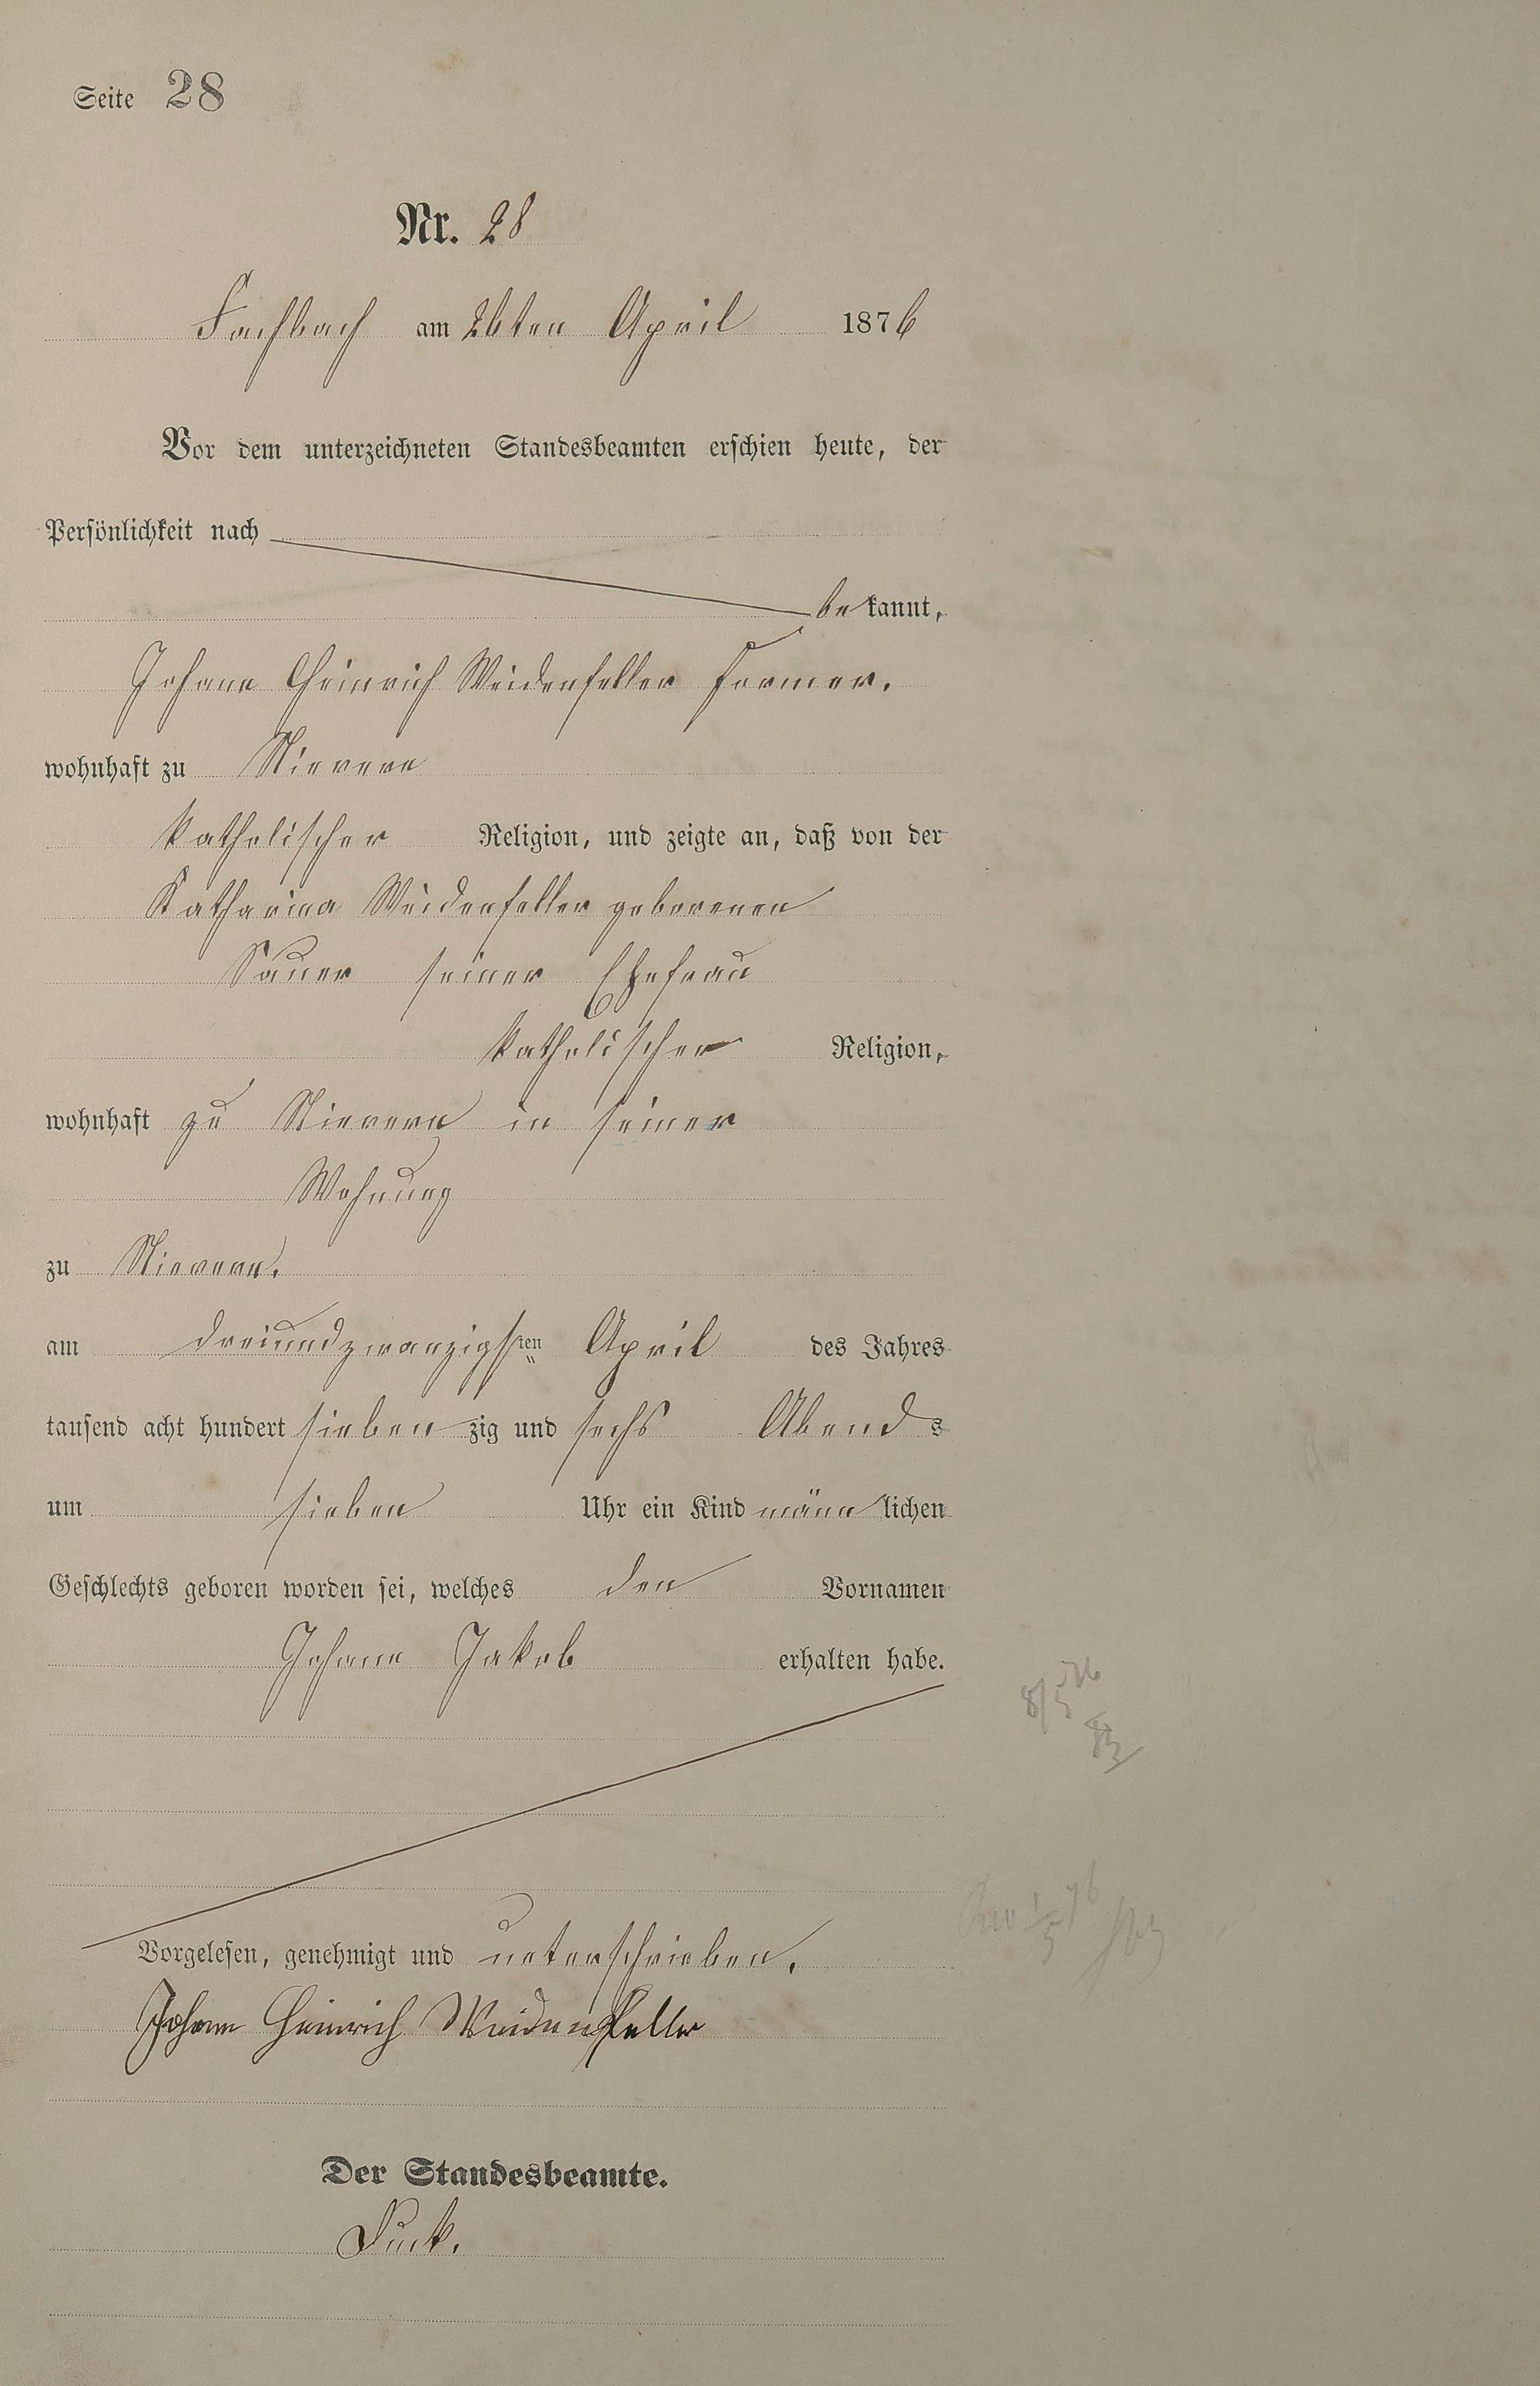 Seite 28
Nr. 28
Fachbach am 26ten April 1876
Vor dem unterzeichneten Standesbeamten erschien heute, der
Persönlichkeit nach
bekannt,
Johann Heinrich Weidenfeller Former.
wohnhaft zu Nievern
katholischer Religion, und zeigte an, daß von der
Katharina Weidenfeller geborenen
Sauer seiner Ehefrau
katholischer Religion,
wohnhaft zu Nievern in seiner
Wohnung
zu Nievern.
am dreiundzwanzigsten April des Jahres
tausend acht hundert siebenzig und sechs Abends
um sieben Uhr ein Kind männlichen
Geschlechts geboren worden sei, welches den Vornamen
Johann Jakob erhalten habe.
Vorgelesen, genehmigt und unterschrieben.
Johann Heinrich Weidenfeller
Der Standesbeamte.